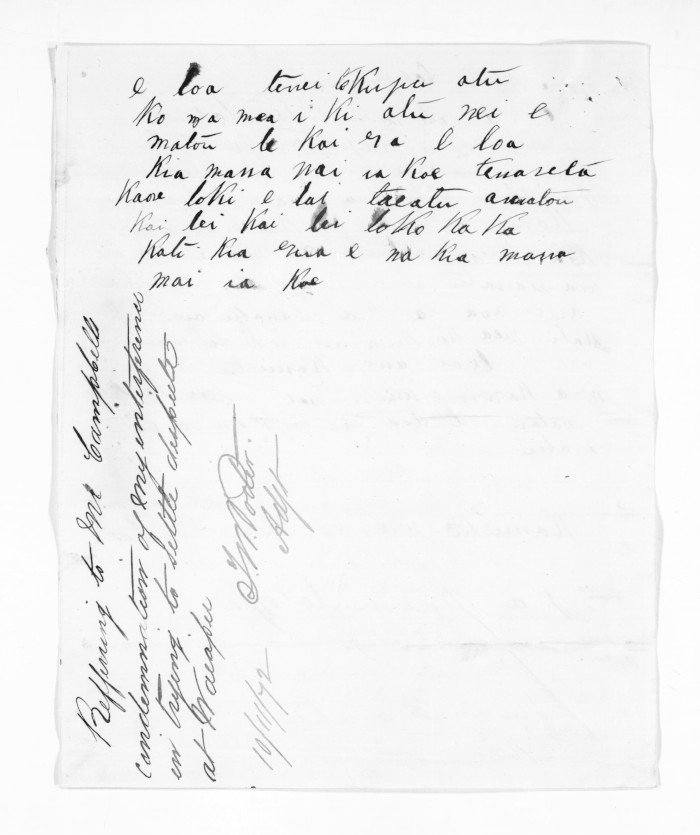 e loa tenei te Kupu atu
Ko nga mea i ki atu nei e
matou te kai ra E loa
Kia mana mai ia Koe
Kaore loki e lai taeatu amatou
kai lei kai lei loko Ka Ka
Kati Kia ena e na Kia mana
mai ia Koe
Reffering to Mr Campbells
condemnation of my interference
in trying to settle disputes
at Waeapu
10/11/72